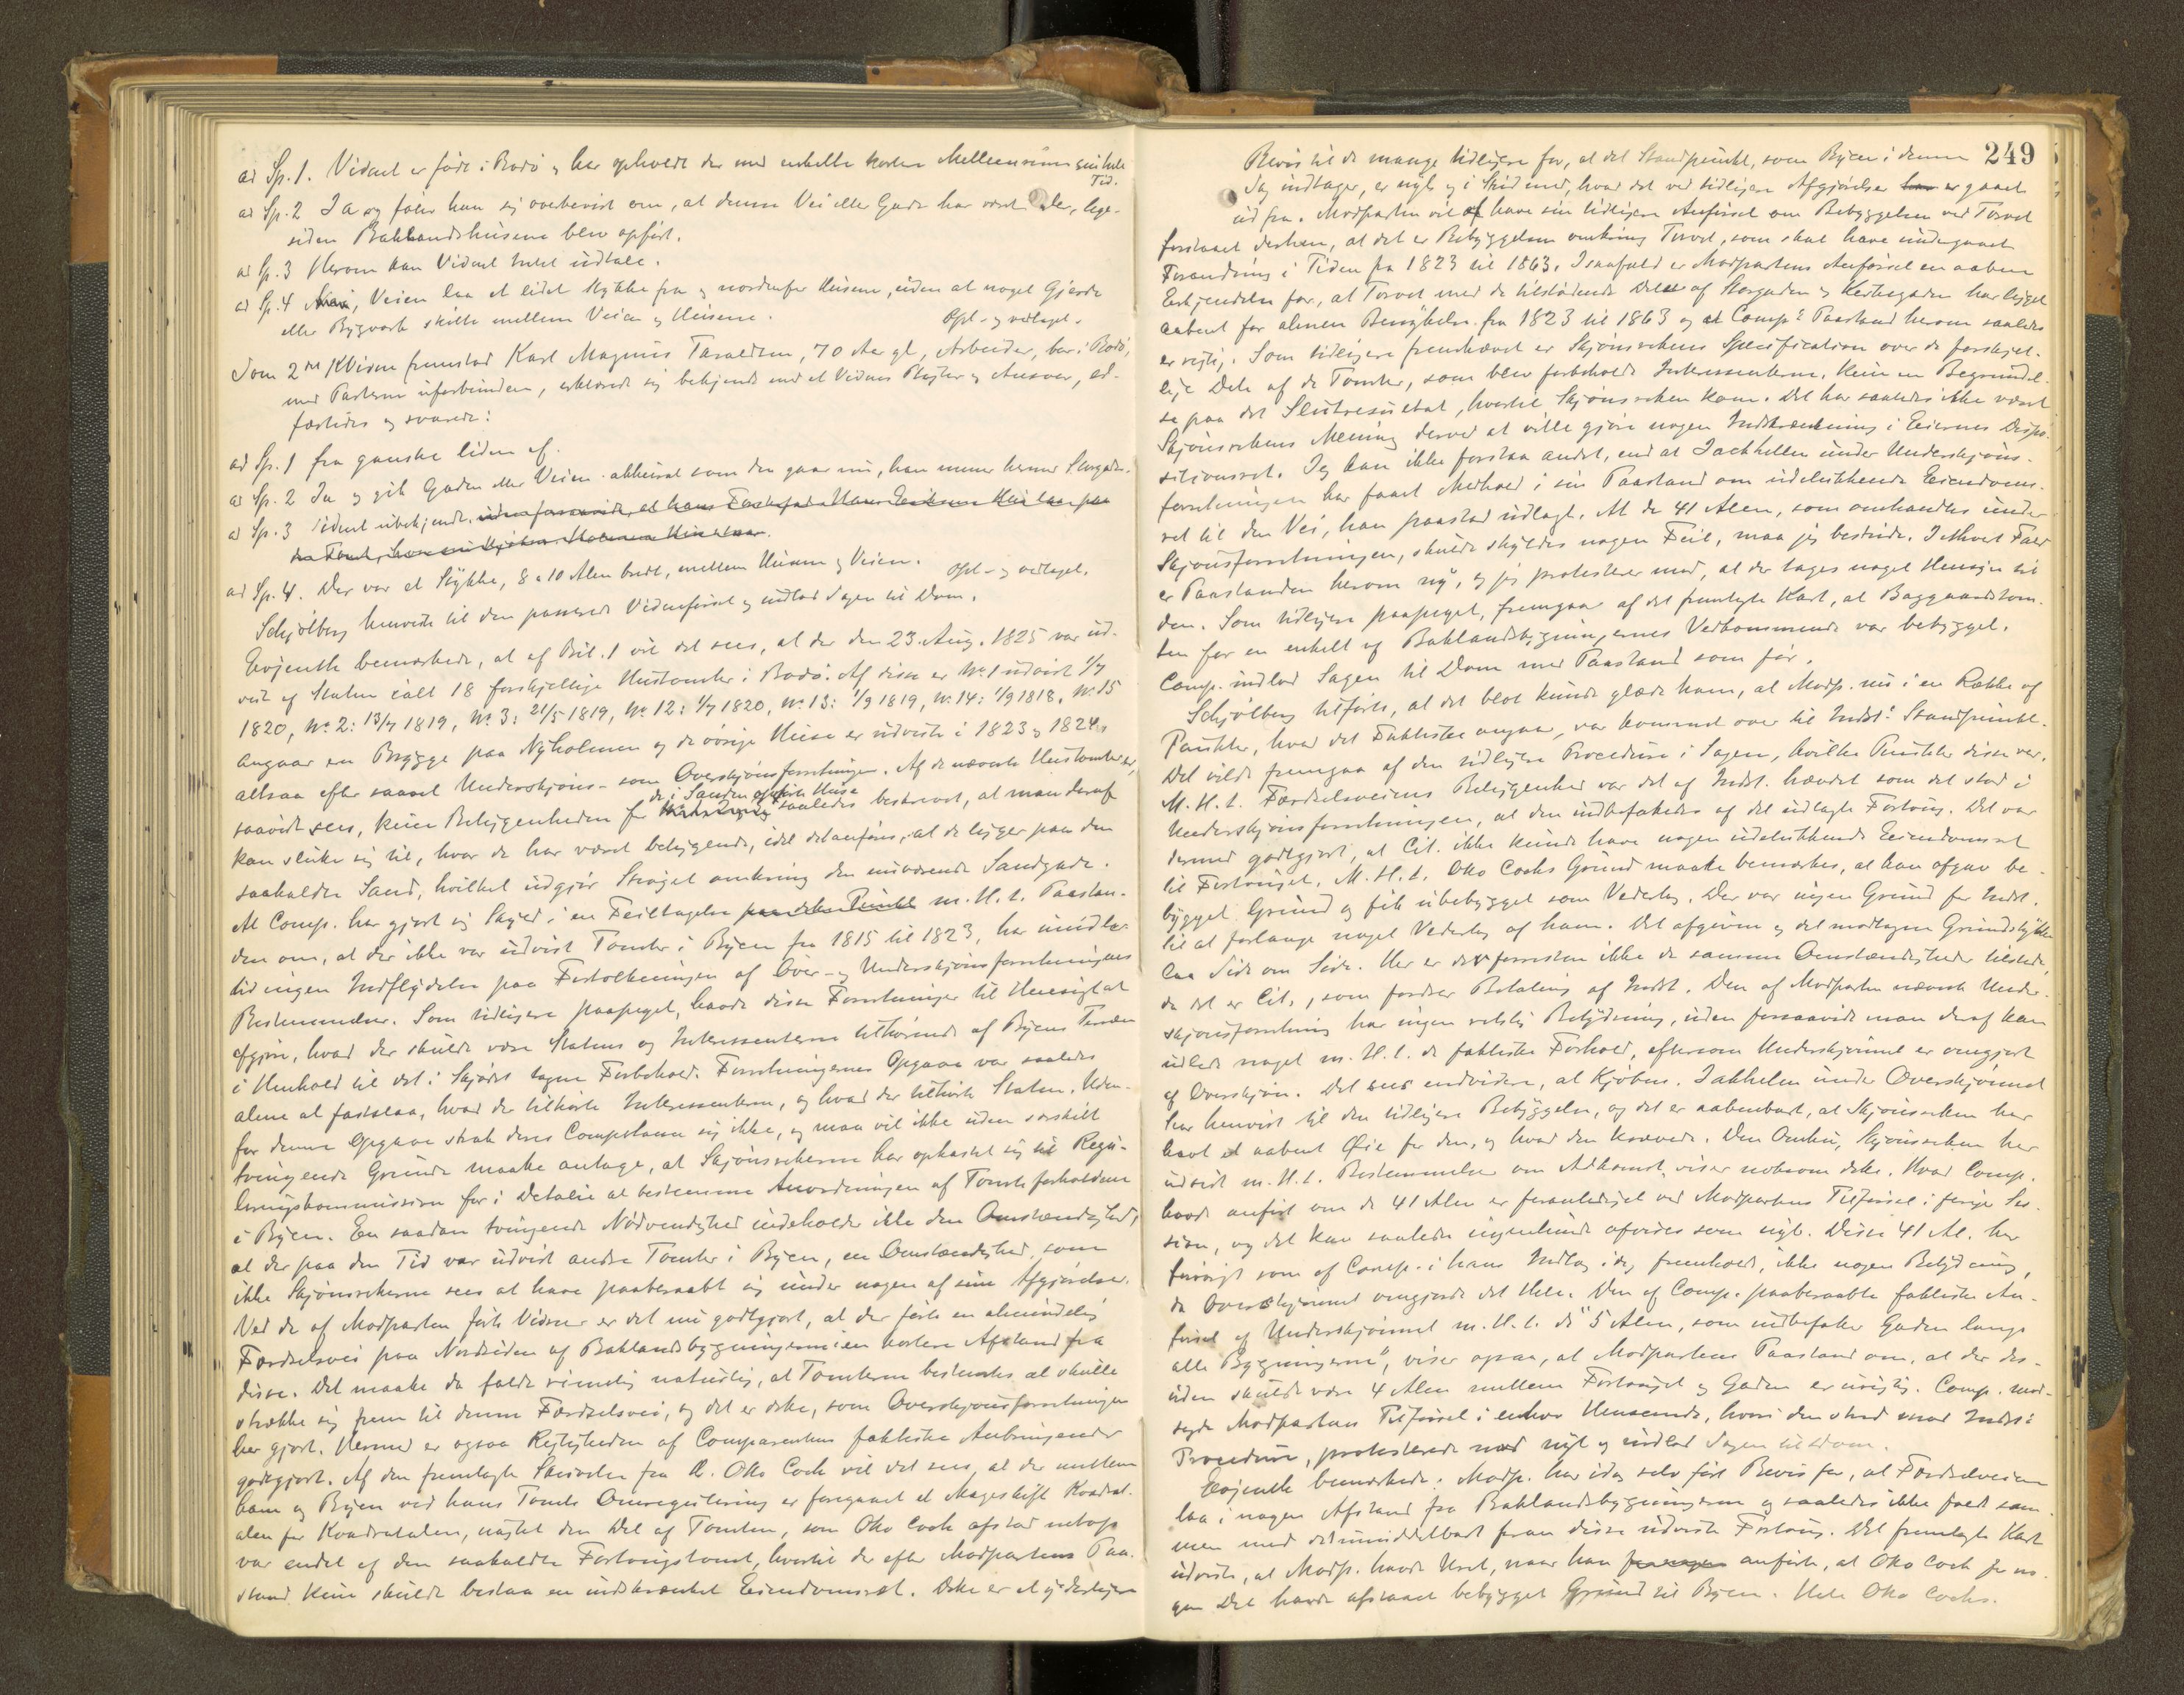 ad Sp. 1. Vidnet er født i Bodø og har opholdt der med enkelte kortere Mellemrum sin hele
Tid.
ad Sp. 2 Ja og føler han sig overbevist om, at denne Vei eller Gade har været der, lige-
siden Baklandshusene blev opført.
ad Sp. 3 Herom kan Vidnet Intet udtale.
ad Sp. 4 Veien laa et lidet Stykke fra og nordenfor Husene, uden at noget Gjerde
eller Bygværk skilte mellem Veien og Husene. Opl- og vedtaget.
Som 2det Vidne fremstod Karl Magnus Taraldsen, 70 Aar gl, Arbeider, bor i Bodø,
med Parterne uforbunden, erklærede sig bekjendt med et Vidnes Pligter og Ansvar, ed-
fæstedes og svarede:
ad Sp. 1 fra ganske liden af.
ad Sp. 2 Ja og gik Gaden eller Veien akkurat som den gaar nu, han mener herved Storgaden.
ad Sp. 3 Vidnet ubekjendt.
ad Sp. 4. Der var et Stykke, 8 a 10 Alen bredt, mellem Husene og Veien. Opl- og vedtaget.
Schjølberg henviste til den passerede Vidneførsel og indlod Sagen til Dom.
Evjenth bemærkede, at af Bil. 1 vil det sees, at der den 23. Aug. 1825 var ud-
vist af Staten ialt 18 forskjellige Hustomter i Bodø. Af disse er No 1 udvist 1/7
1820, No 2: 13/7 1819, No 3: 21/5 1819, No 12: 1/7 1820, No 13: 1/9 1819, No 14: 1/9 1818. No 15
angaar en Brygge paa Nyholmen og de øvrige Huse er udviste i 1823 og 1824,
altsaa efter saavel Underskjøns- som Overskjønsforretningen. Af de nævnte Hustomter er,
saavidt sees, kun Beliggenheden for de i Sanden opførte Huse saaledes beskrevet, at man deraf
kan slutte sig til, hvor de har været beliggende, idet det anføres, at de ligger paa den
saakaldte Sand, hvilket udgjør Strøget omkring den nuværende Sandgade.
At Comp. har gjort sig skyld i en Feiltagelse paa dette Punkt m. H. t. Paastan-
den om, at der ikke var udvist Tomter i Byen fra 1815 til 1823, har imidler-
tid ingen Indflydelse paa Fortolkningen af Over- og Underskjønsforretningens
Bestemmelser. Som tidligere paapeget, havde disse Forretninger til Hensigt at
afgjøre, hvad der skulde være Statens og Interessenterne tilhørende af Byens Terræn
i Henhold til det i Skjødet tagne Forbehold. Forretningernes Opgave var saaledes
alene at fastslaa, hvad der tilhørte Interessenterne, og hvad der tilhørte Staten. Uden-
for denne Opgave strak deres Competance sig ikke, og man vil ikke uden særskilt
tvingende Grunde maatte antage, at Skjønsretterne har opkastet sig til Regu-
leringskommission for i Detalie at bestemme Anordningen af Tomteforholdene
i Byen. En saadan tvingende Nødvendighed indeholder ikke den Omstændighed,
at der paa den Tid var udvist andre Tomter i Byen, en Omstændighed, som
ikke Skjønsretterne sees at have paaberaabt sig under nogen af sine Afgjørelser.
Ved de af Modparten førte Vidner er det nu godtgjort, at der førte en almindelig
Færdselsvei paa Nordsiden af Baklandsbygningerne i en kortere Afstand fra
disse. Det maatte da falde rimelig naturlig, at Tomterne bestemtes at skulle
strække sig frem til denne Færdselsvei, og det er dette, som Overskjønsforretningen
har gjort. Hermed er ogsaa Rigtigheden af Comparentens faktiske Anbringender
godtgjort. Af den fremlagte Skrivelse fra O. Otto Coch vil det sees, at der mellem
ham og Byen ved hans Tomts Omregulering er foregaaet et Mageskifte Kvadrat-
alen for Kvadratalen, uagtet den Del af Tomten, som Otto Coch afstod netop
var endel af den saakaldte Fortougstomt, hvortil der efter Modpartens Paa-
stand kun skulde bestaa en indskrænket Eiendomsret. Dette er et yderligere
249
Bevis til de mange tidligere for, at det Standpunkt, som Byen i denne
Sag indtager, er nyt og i Strid med, hvad det ved tidligere Afgjørelser er gaaet
ud fra. Modparten vil have sin tidligere Anførsel om Bebyggelsen ved Torvet
forstaaet derhen, at det er Bebyggelsen omkring Torvet, som skal have undergaaet
Forandring i Tiden fra 1823 til 1863. I saafald er Modpartens Anførsel en aaben
Erkjendelse for, at Torvet med de tilstødende Dele af Storgaden og Kirkegaden har ligget
aabent for almen Benyttelse fra 1823 til 1863 og at Comps Paastand herom saaledes
er rigtig. Som tidligere fremhævet er Skjønsrettens Specification over de forskjel-
lige Dele af de Tomter, som blev forbeholdt Interessenterne, kun en Begrundel-
se paa det Slutresultat, hvortil Skjønsretten kom. Det har saaledes ikke været
Skjønsrettens Mening derved at ville gjøre nogen Indskrænkning i Eiernes Dispo-
sitionsret. Jeg kan ikke forstaa andet, end at Jackhelln under Underskjøns-
forretningen har faaet Medhold i sin Paastand om udelukkende Eiendoms-
ret til den Vei, han paastod udlagt. At de 41 Alen, som omhandles under
Skjønsforretningen, skulde skyldes nogen Feil, maa jeg bestride. I ethvert Fald
er Paastanden herom ny, og jeg protesterer mod, at der tages noget Hensyn til
den. Som tidligere paapeget, fremgaar af det fremlagte Kart, at Baggaardstom-
ten for en enkelt af Baklandsbygningernes Vedkommende var bebygget.
Comp. indlod Sagen til Dom med Paastand som før.
Schjølberg tilførte, at det blot kunde glæde ham, at Modp. nu i en Række af
Punkter, hvad det Faktiske angaar, var kommet over til Indsts Standpunkt.
Det vilde fremgaa af den tidligere Procedure i Sagen, hvilke Punkter disse var.
M. H. t. Færdselsveiens Beliggenhed var det af Indst. hævdet som det stod i
Underskjønsforretningen, at den indbefattedes af det udlagte Fortoug. Det var
dermed godtgjort, at Cit. ikke kunde have nogen udelukkende Eiendomsret
til Fortouget. M. H. t. Otto Cochs Grund maatte bemærkes, at han afgav be-
bygget Grund og fik ubebygget som Vederlag. Der var ingen Grund for Indst.
til at forlange noget Vederlag af ham. Det afgivne og det modtagne Grundstykke
laa Side om Side. Her er der forresten ikke de samme Omstændigheder tilstede,
da det er Cit., som fordrer Betaling af Indst. Den af Modparten nævnte Under-
skjønsforretning har ingen retslig Betydning, uden forsaavidt man deraf kan
udlede noget m. H. t. de faktiske Forhold, eftersom Underskjønnet er omgjort
af Overskjøn. Det sees endvidere, at Kjøbm. Jakhelln under Overskjønnet
har henvist til den tidligere Bebyggelse, og det er aabenbart, at Skjønsretten har
havt et aabent Øie for den, og hvad den krævede. Den Omhu, Skjønsretten har
udvist m. H. t. Bestemmelser om Adkomst, viser noksom dette. Hvad Comp.
havde anført om de 41 Alen er foranlediget ved Modpartens Tilførsel i forrige Ses-
sion, og det kan saaledes ingenlunde afvises som nyt. Disse 41 Al. har
forøvrigt som af Comp. i hans Indlæg idag fremholdt, ikke nogen Betydning,
da Overskjønnet omgjorde det Hele. Den af Comp. paaberaabte faktiske An-
førsel af Underskjønnet m. H. t. de "5 Alen, som indbefatter Gaden langs
alle Bygningerne", viser ogsaa, at Modpartens Paastand om, at der des-
uden skulde være 4 Alen mellem Fortouget og Gaden er urigtig. Comp. mod-
sagde Modpartens Tilførsel i enhver Henseende, hvori den stred mod Indsts
Procedure, protesterede mod nyt og indlod Sagen til Dom.
Evjenth bemærkede: Modp. har idag selv ført Bevis for, at Færdselsveien
laa i nogen Afstand fra Baklandsbygningerne og saaledes ikke faldt sam-
men med det umiddelbart foran disse udviste Fortoug. Det fremlagte Kart
udviste, at Modp. havde Uret, naar han anførte, at Otto Coch for no-
gen Del havde afstaaet bebygget Grund til Byen. Hele Otto Cochs